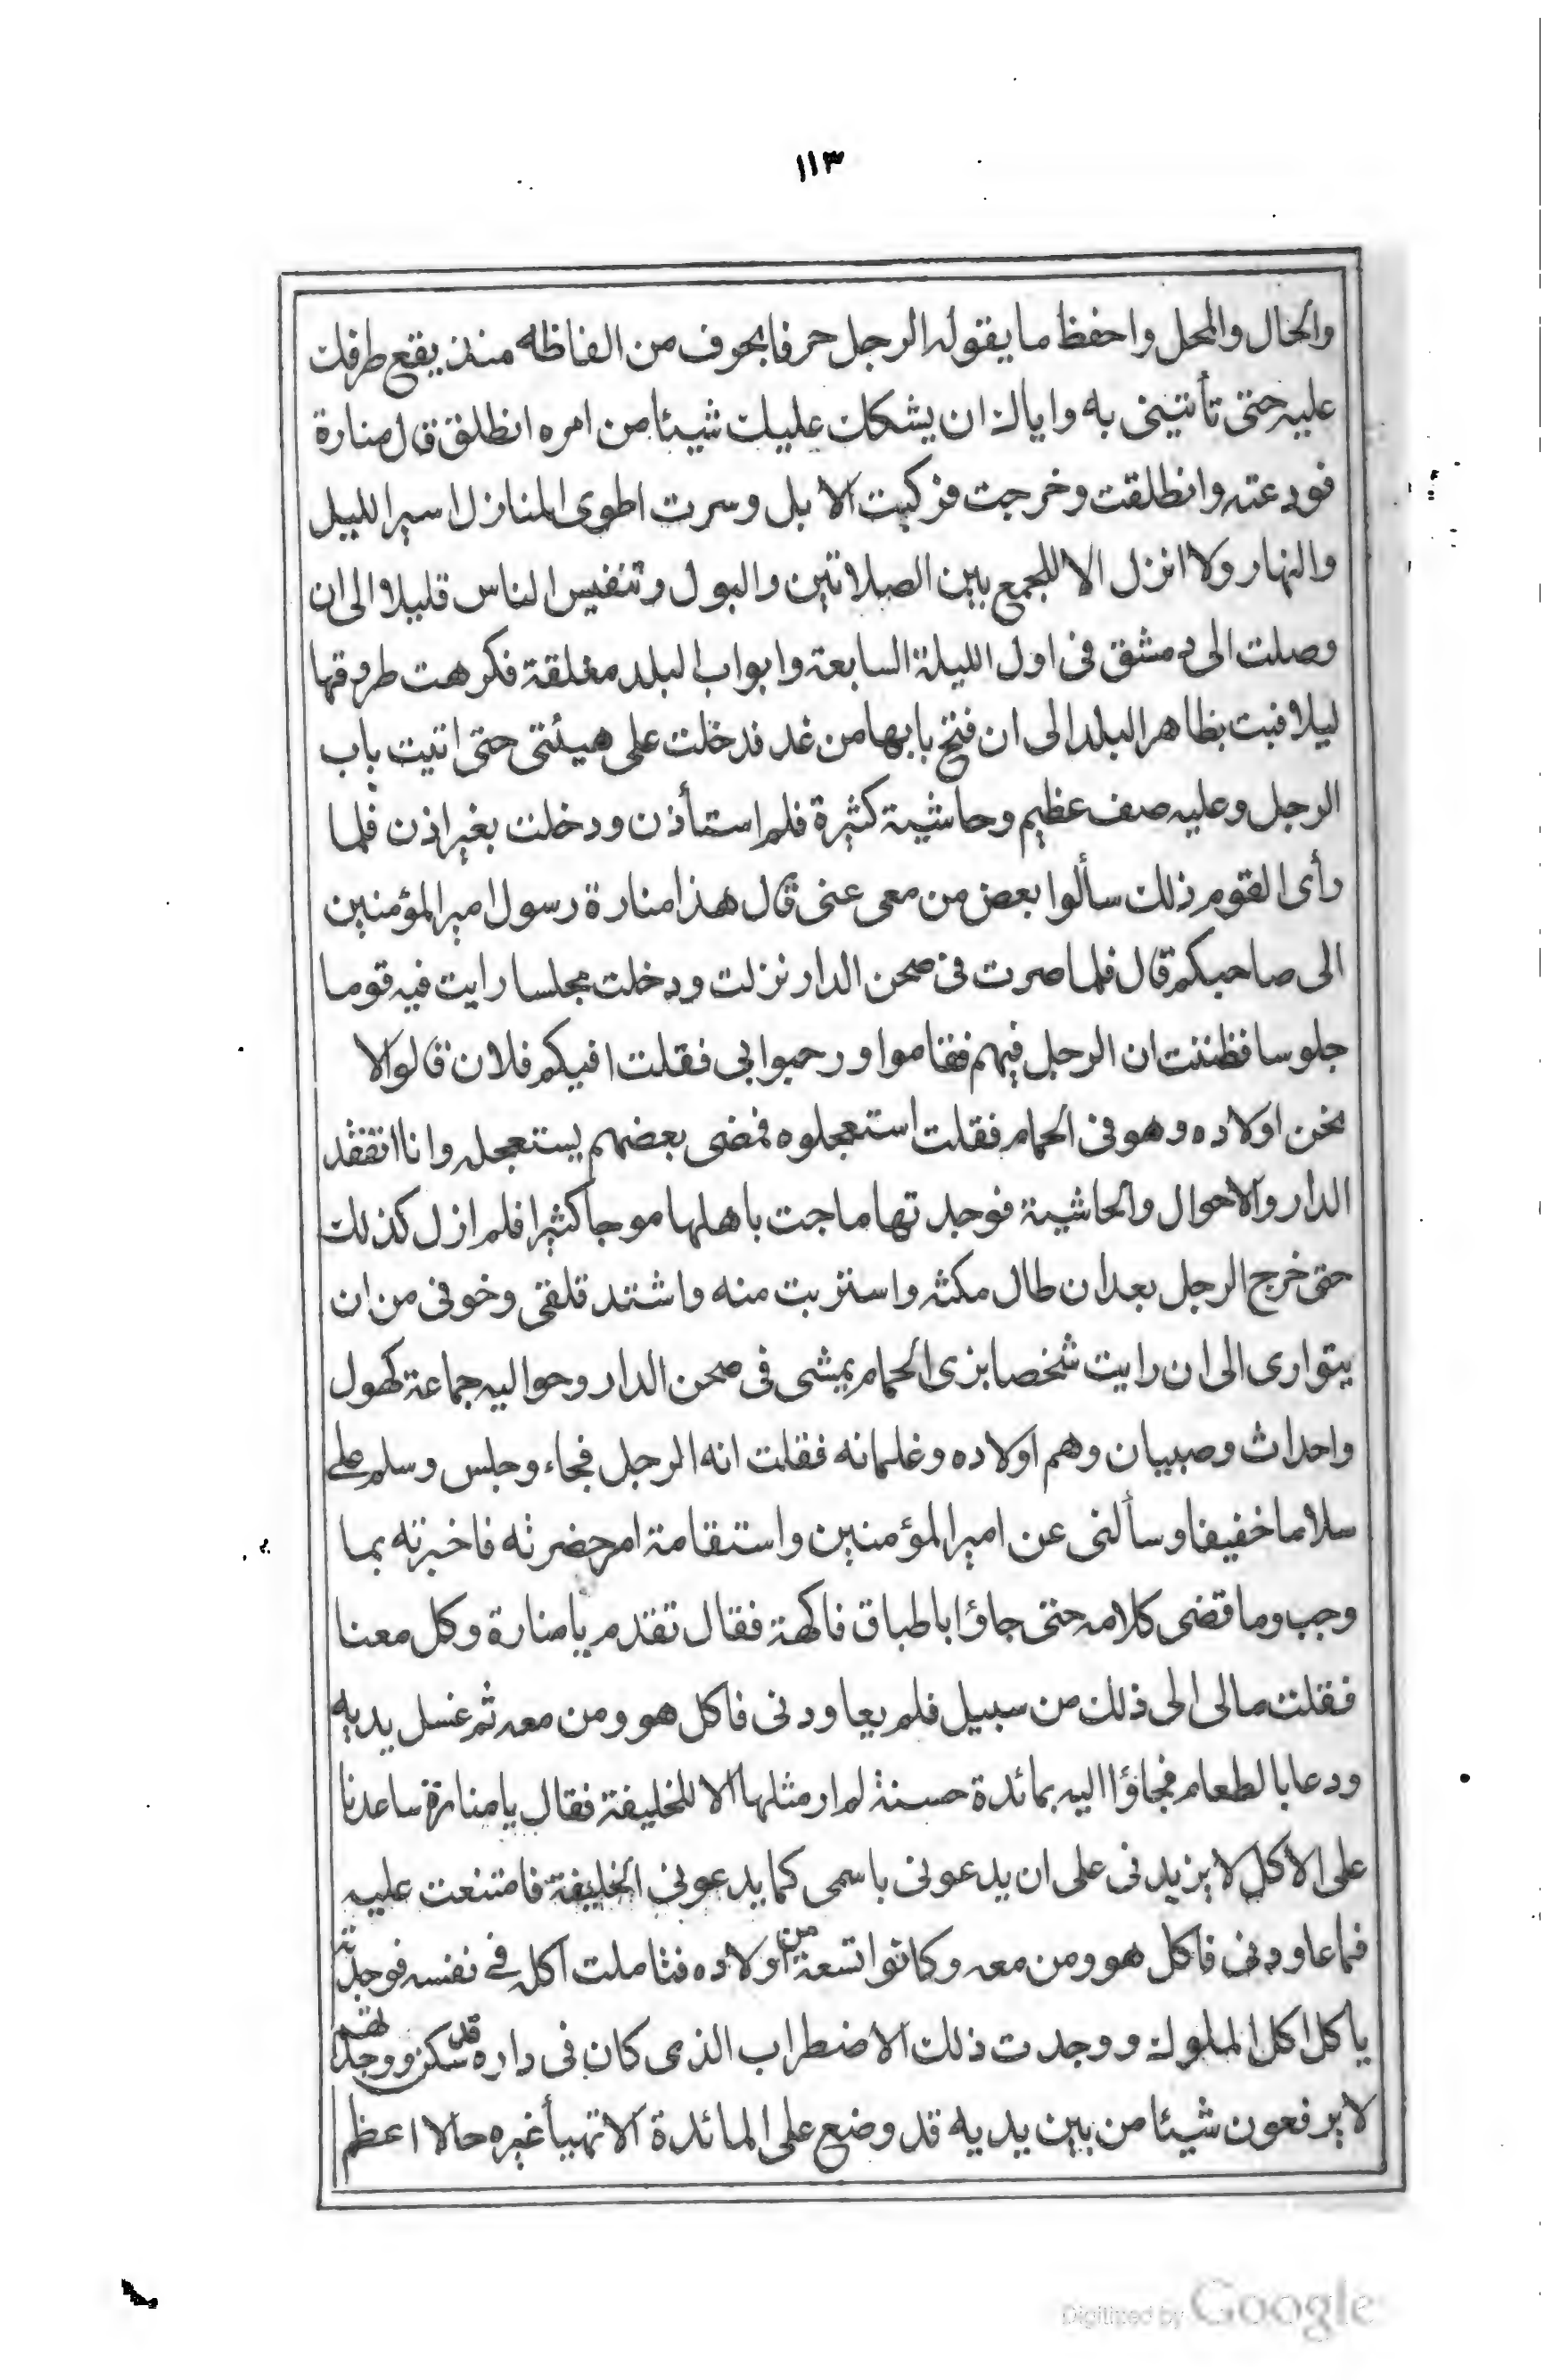 ١١٣
والحال والمحل واحفظ ما يقوله الرجل حرفا بحرف من الفاظه منذ يقع طرفك
عليه حتى تأتينى به واياك ان يشكل عليك شيئا من امره انطلق قال منارة
فودعته وانطلقت وخرجت فركبت الابل وسرت اطوى المنازل اسير الليل
والنهار ولا انزل الا للجمع بين الصلاتين والبول وتنفيس الناس قليلا الى ان
وصلت الى دمشق فى اول الليلة السابعة وابواب البلد مغلقة فكرهت طروقها
ليلا فبت بظاهر البلد الى ان فتح بابها من غد فدخلت على هيئتى حتى اتيت باب
الرجل وعليه صف عظيم وحاشية كثيرة فلم استأذن ودخلت بغير اذن فلما
رأى القوم ذلك سألوا بعض من معى عنى قال هذا منارة رسول امير المؤمنين
الى صاحبكم قال فلما صرت فى صحن الدار نزلت ودخلت مجلسا رايت فيه قوما
جلوسا فظننت ان الرجل فيهم فقاموا ورحبوا بى فقلت افيكم فلان قالوا لا
نحن اولاده وهو فى الحمام فقلت استعجلوه فمضى بعضهم يستعجله وانا اتفقد
الدار والاحوال والحاشية فوجدتها ماجت باهلها موجا كثيرا فلم ازل كذلك
حتى خرج الرجل بعد ان طال مكثه واستربت منه واشتد قلقى وخوفى من ان
يتوارى الى ان رايت شخصا بزى الحمام يمشى فى صحن الدار وحواليه جماعة كهول
واحداث وصبيان وهم اولاده وغلمانه فقلت انه الرجل فجاء وجلس وسلم على
سلاما خفيفا وسألنى عن امير المؤمنين واستقامة امر حضرته فاخبرته بما
وجب وما قضى كلامه حتى جاؤا باطباق فاكهة فقال تقدم يا منارة وكل معنا
فقلت مالى الى ذلك من سبيل فلم يعاودنى فاكل هو ومن معه ثم غسل يديه
ودعا بالطعام فجاؤا اليه بمائدة حسنة لم ار مثلها الا للخليفة فقال يا منارة ساعدنا
على الاكل لا يزيدنى على ان يدعونى باسمى كما يدعونى الخليفة فامتنعت عليه
فما عاودنى فاكل هو ومن معه وكانوا تسعة من اولاده فتاملت اكله فى نفسه فوجدته
ياكل اكل الملوك ووجدت ذلك الاضطراب الذى كان فى داره قد سكن ووجدتهم
لا يرفعون شيئا من بين يديه قد وضع على المائدة الا تهيأ غيره حالا اعظم
Digitized by Google